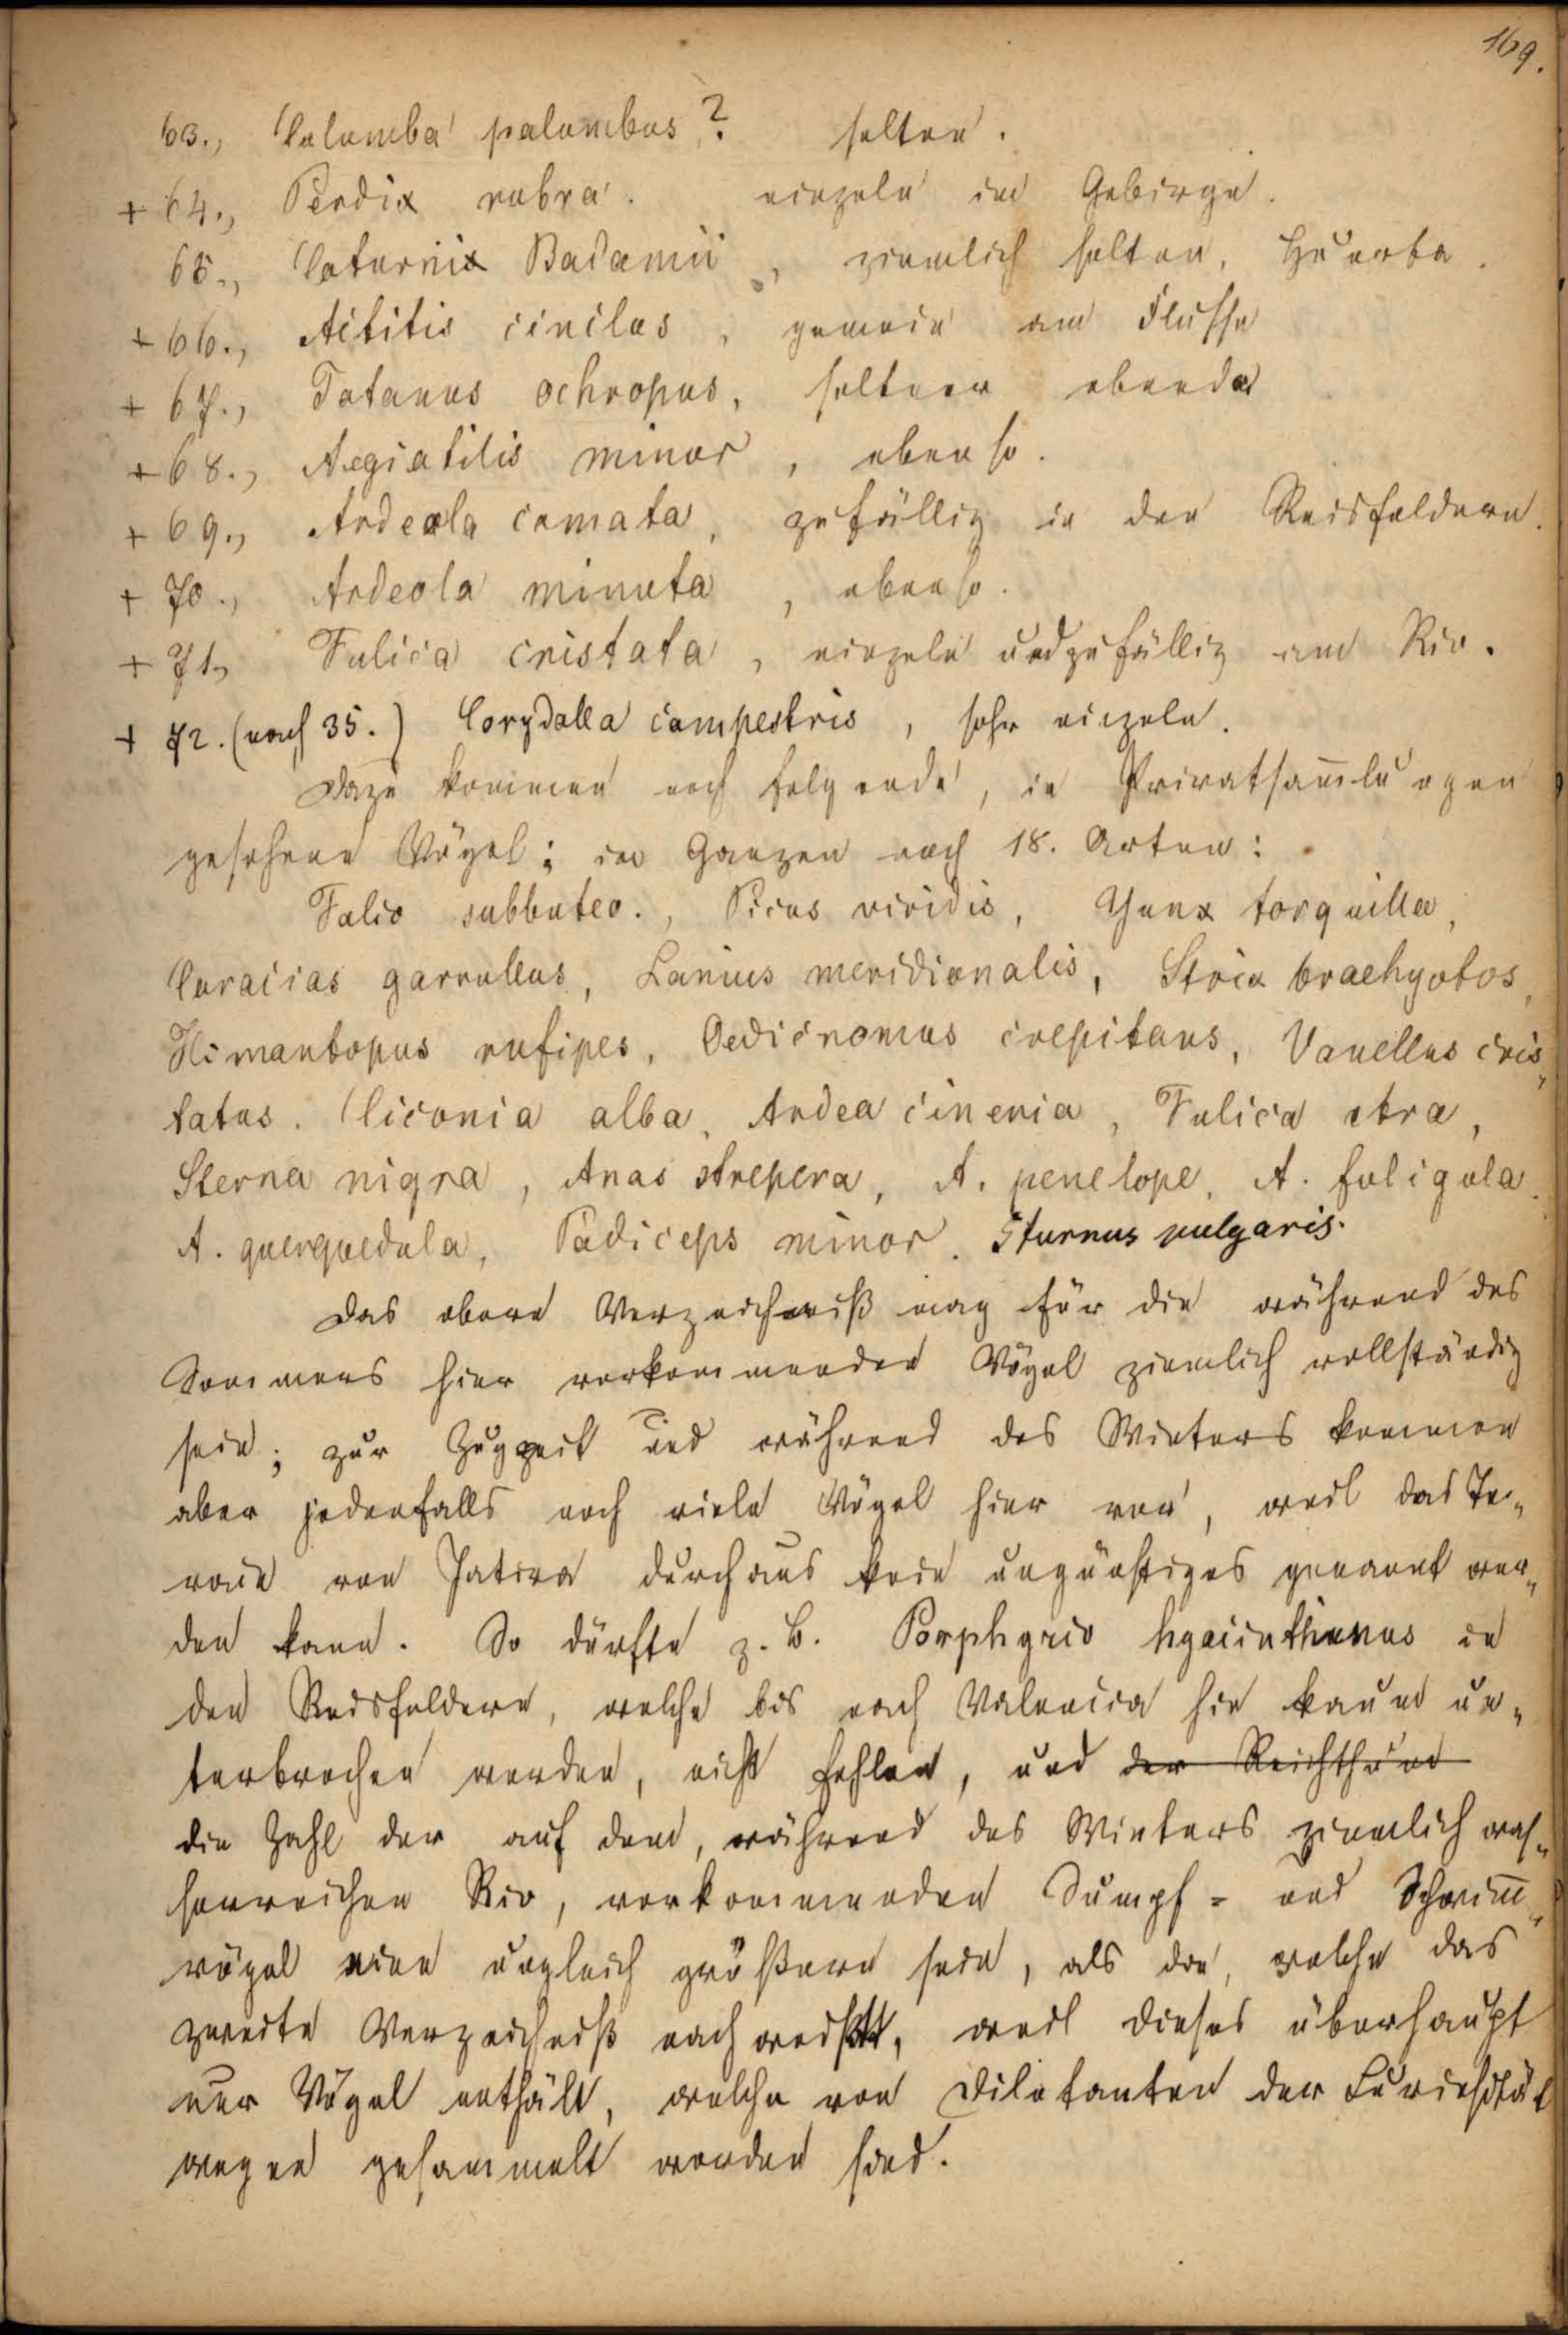 169.
63., Columba palumbus,? selten.
+ 64., Perdix rubra. einzeln im Gebirge.
65., Coturnix Badamii, ziemlich selten, Huerta.
+ 66., Actitis cinclus, gemein am Flusse
+ 67., Totanus ochropus, seltner ebenda
+ 68., Aegialitis minor, ebenso.
+ 69., Ardeola comata, zufällig in den Reisfeldern.
+ 70., Ardeola minuta, ebenso.
+ 71., Fulica cristata, einzeln und zufällig am Rio.
+ 72. (nach 35.) Corydalla campestris, sehr einzeln.
Dazu kommen noch folgende, in Privatsam̅lungen
gesehene Vögel; im Ganzen noch 18. Arten:
Falco subbuteo., Picus viridis, Yunx torquilla,
Coracias garrullus, Lanius meridionalis, Strix brachyotos,
Himantopus rufipes, Oedicnomus crepitans, Vanellus cris„
tatus. Ciconia alba, Ardea cineria, Fulica atra,
Sterna nigra, Anas strepera, A. penelope, A. fuligula.
A. querquedula, Podiceps minor. Sturnus vulgaris.
Das obere Verzeichniß mag für die während des
Sommers hier vorkommenden Vögel ziemlich vollständig
sein; zur Zugzeit und während des Winters kommen
aber jedenfalls noch viele Vögel hier vor, weil das Te„
rain von Jativa durchaus kein ungünstiges genannt wer„
den kann. So dürfte z. B. Porphyrio hyacinthinus in
den Reisfeldern, welche bis nach Valencia hin kaum un„
terbrochen werden, nicht fehlen, und der Reichthum
die Zahl der auf dem, während des Winters ziemlich was„
serreichen Rio, vorkommenden Sumpf= und Schwim̅„
vögel eine ungleich größere sein, als die, welche das
zweite Verzeichniß nachweißt, weil dieses überhaupt
nur Vögel enthält, welche von Diletanten der Curiosität
wegen gesammelt worden sind.